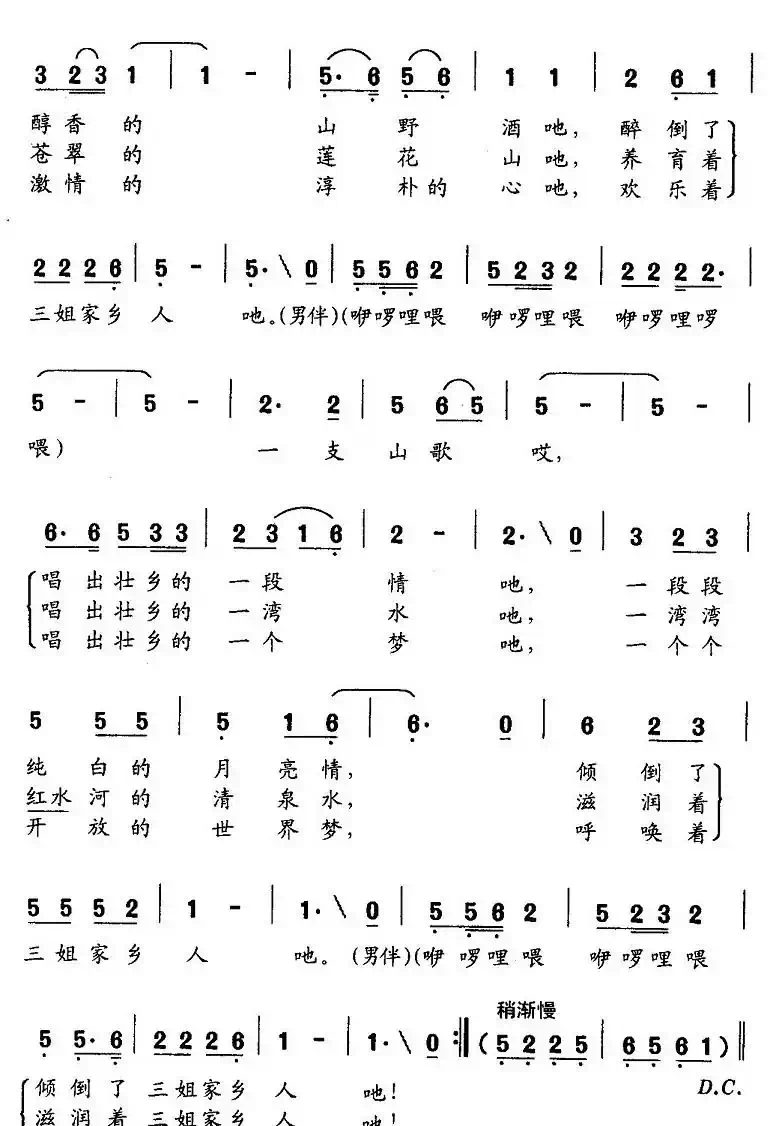 3 2 3 1 | 1 - | 5· 6 5 6 | 1 1 | 2 6 1 |
醇香的 山野 酒吔，醉倒了
苍翠的 莲花 山吔，养育着
激情的 淳朴的 心吔，欢乐着
2 2 2 6 | 5 - | 5· \ 0 | 5 5 6 2 | 5 2 3 2 | 2 2 2 2· |
三姐家乡 人 吔。(男伴)(咿啰哩喂 咿啰哩喂 咿啰哩啰
5 - | 5 - | 2· 2 | 5 6 5 | 5 - | 5 - |
喂) 一 支 山歌 哎，
6· 6 5 3 3 | 2 3 1 6 | 2 - | 2· \ 0 | 3 2 3 |
唱出壮乡的 一段 情 吔，一段段
唱出壮乡的 一湾 水 吔，一湾湾
唱出壮乡的 一个 梦 吔，一个个
5 5 5 | 5 1 6 | 6· 0 | 6 2 3 |
纯白的 月亮情， 倾倒了
红水河的 清泉水， 滋润着
开放的 世界梦， 呼唤着
5 5 5 2 | 1 - | 1· \ 0 | 5 5 6 2 | 5 2 3 2 |
三姐家乡 人 吔。(男伴)(咿啰哩喂 咿啰哩喂
稍渐慢
5 5· 6 | 2 2 2 6 | 1 - | 1· \ 0 :‖ (5 2 2 5 | 6 5 6 1) ‖
D.C.
倾倒了 三姐家乡 人 吔！
滋润着 三姐家乡 人 吔！